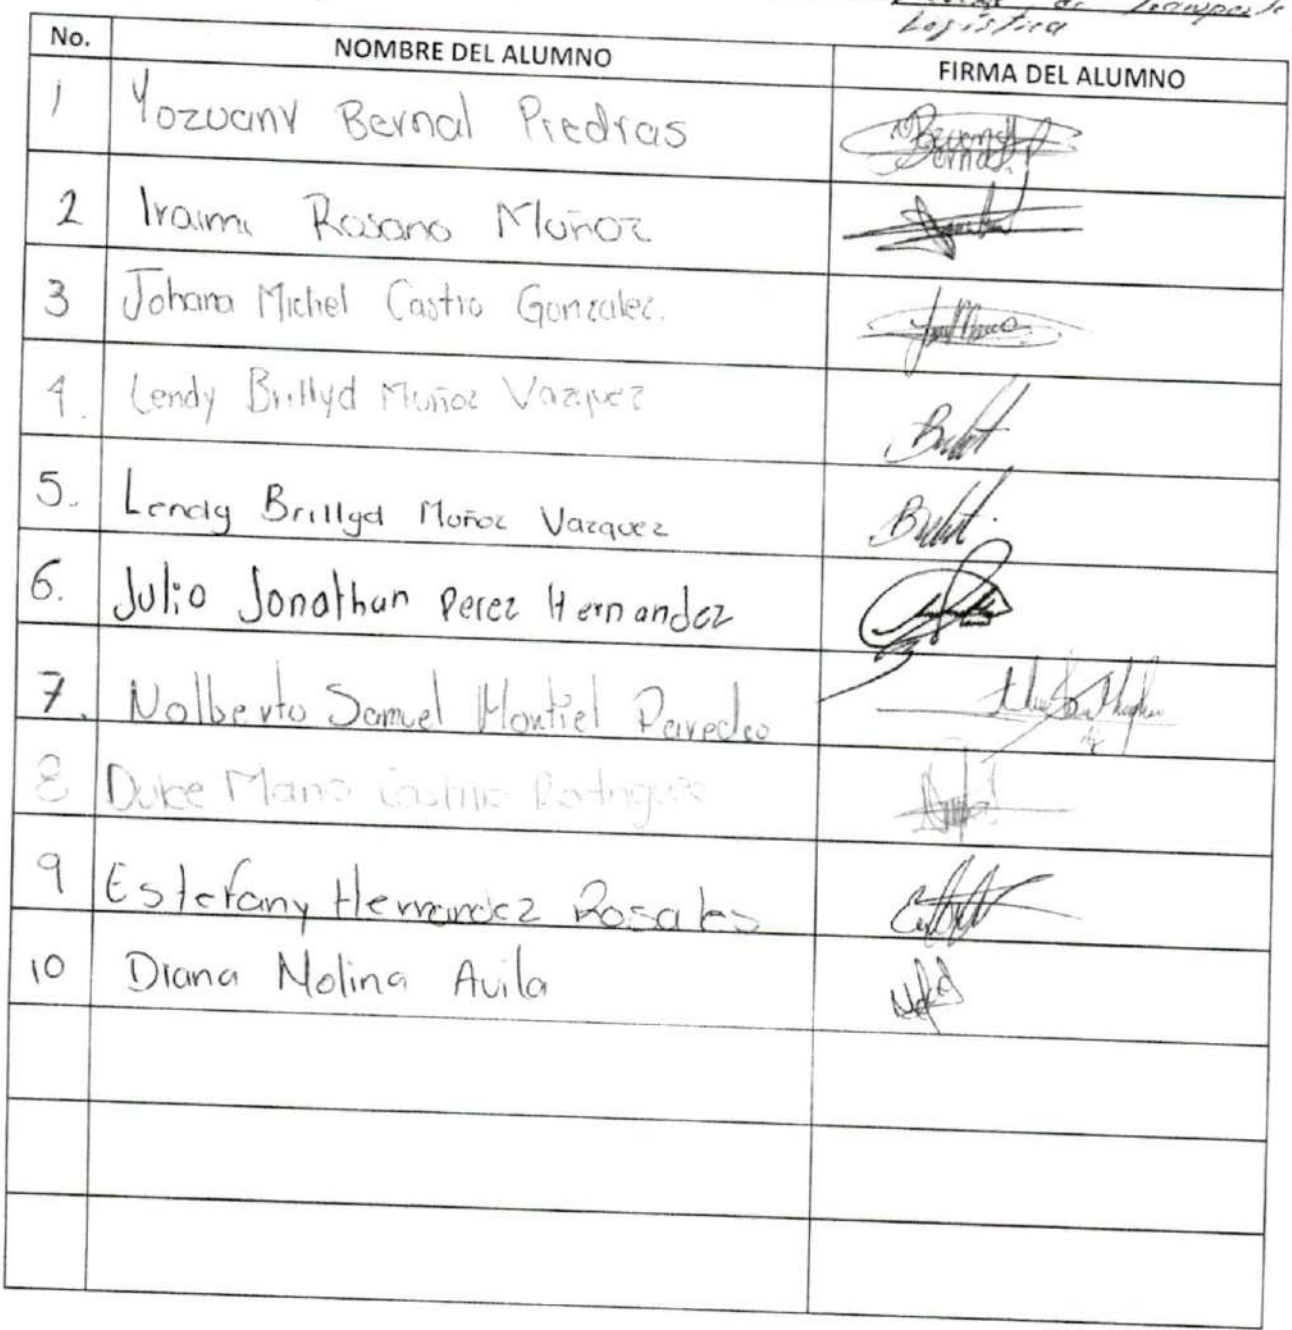 de Transporte
Logística
No. NOMBRE DEL ALUMNO FIRMA DEL ALUMNO
1 Yozuany Bernal Piedras Bernal
2 Iraimi Rosano Muñoz
3 Johana Michel Castro Gonzalez.
4. Lendy Brillyd Muñoz Vazquez
5. Lendy Brillyd Muñoz Vazquez
6. Julio Jonathan Perez Hernandez
7. Nolberto Samuel Montiel Paredes
8 Dulce Maria Castillo Rodriguez
9 Estefany Hernandez Rosales
10 Diana Molina Avila